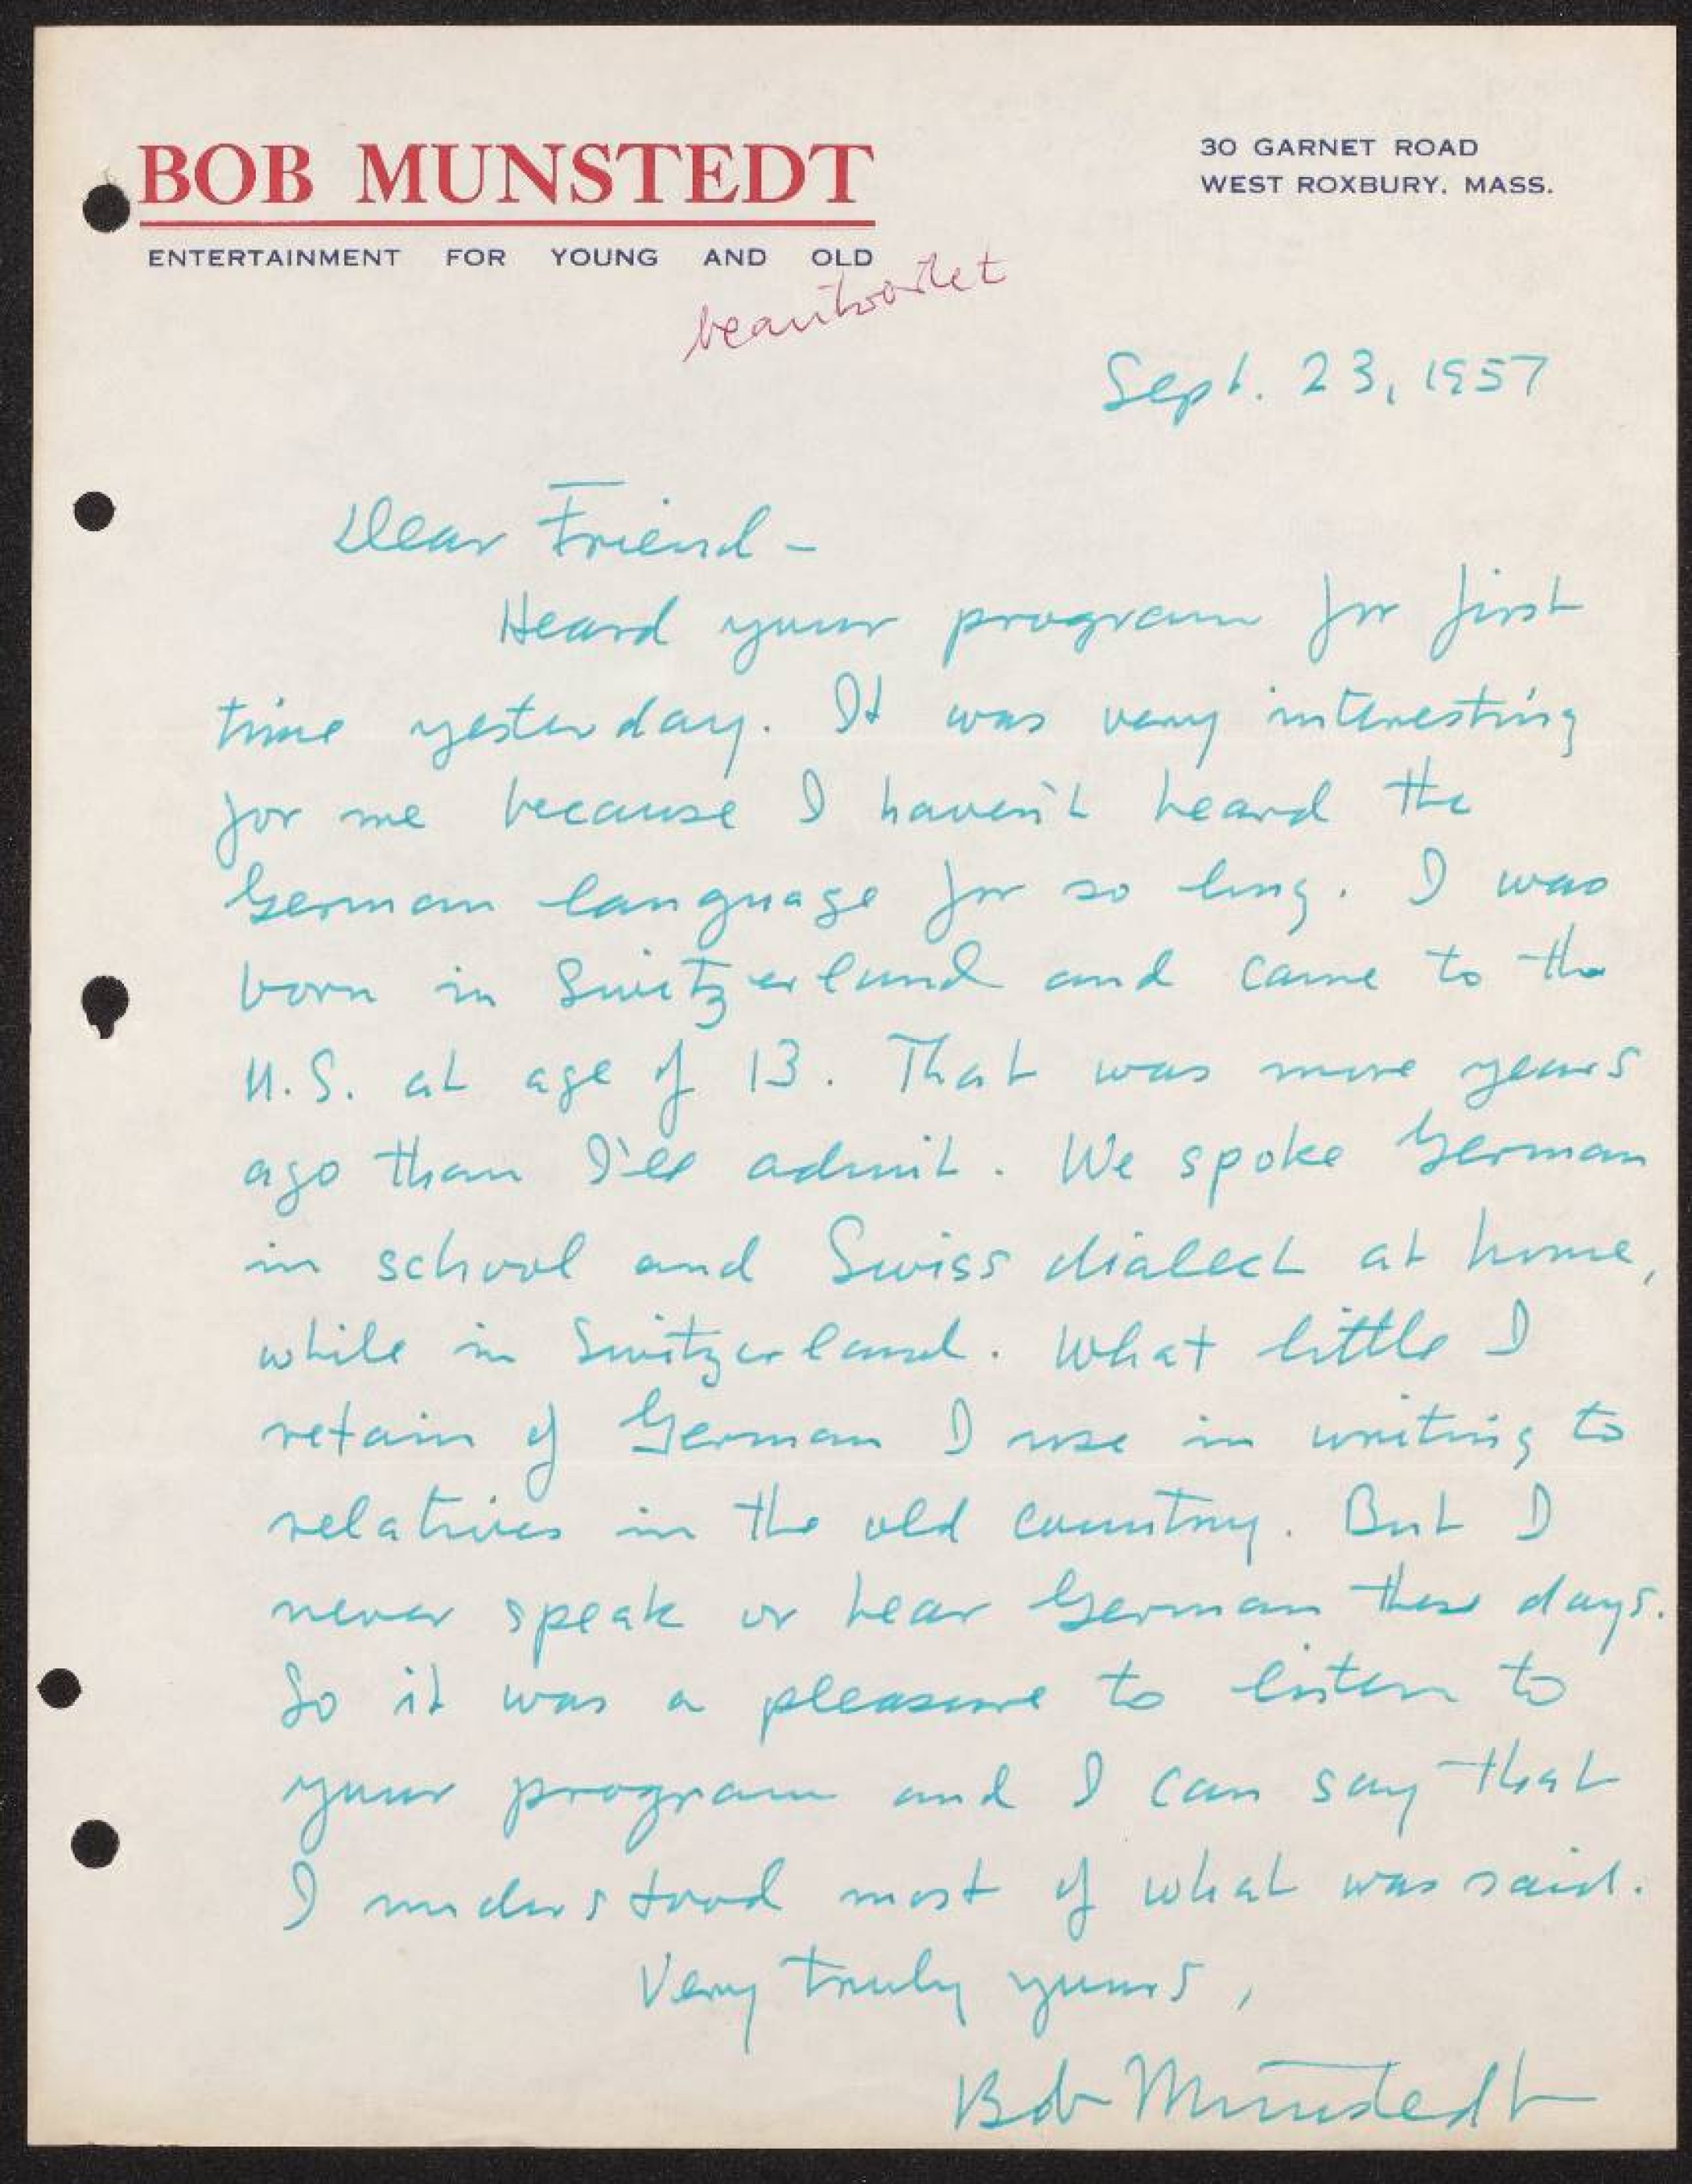 BOB MUNSTEDT
ENTERTAINMENT FOR YOUNG AND OLD
30 GARNET ROAD
WEST ROXBURY, MASS.
beantwortet
Sept. 23, 1957
Dear Friend -
Heard your program for first
time yesterday. It was very interesting
for me because I haven't heard the
German language for so long. I was
born in Switzerland and came to the
U.S. at age of 13. That was more years
ago than I'll admit. We spoke German
in school and Swiss dialect at home,
while in Switzerland. What little I
retain of German I use in writing to
relatives in the old country. But I
never speak or hear German these days.
So it was a pleasure to listen to
your program and I can say that
I understood most of what was said.
Very truly yours,
Bob Munstedt